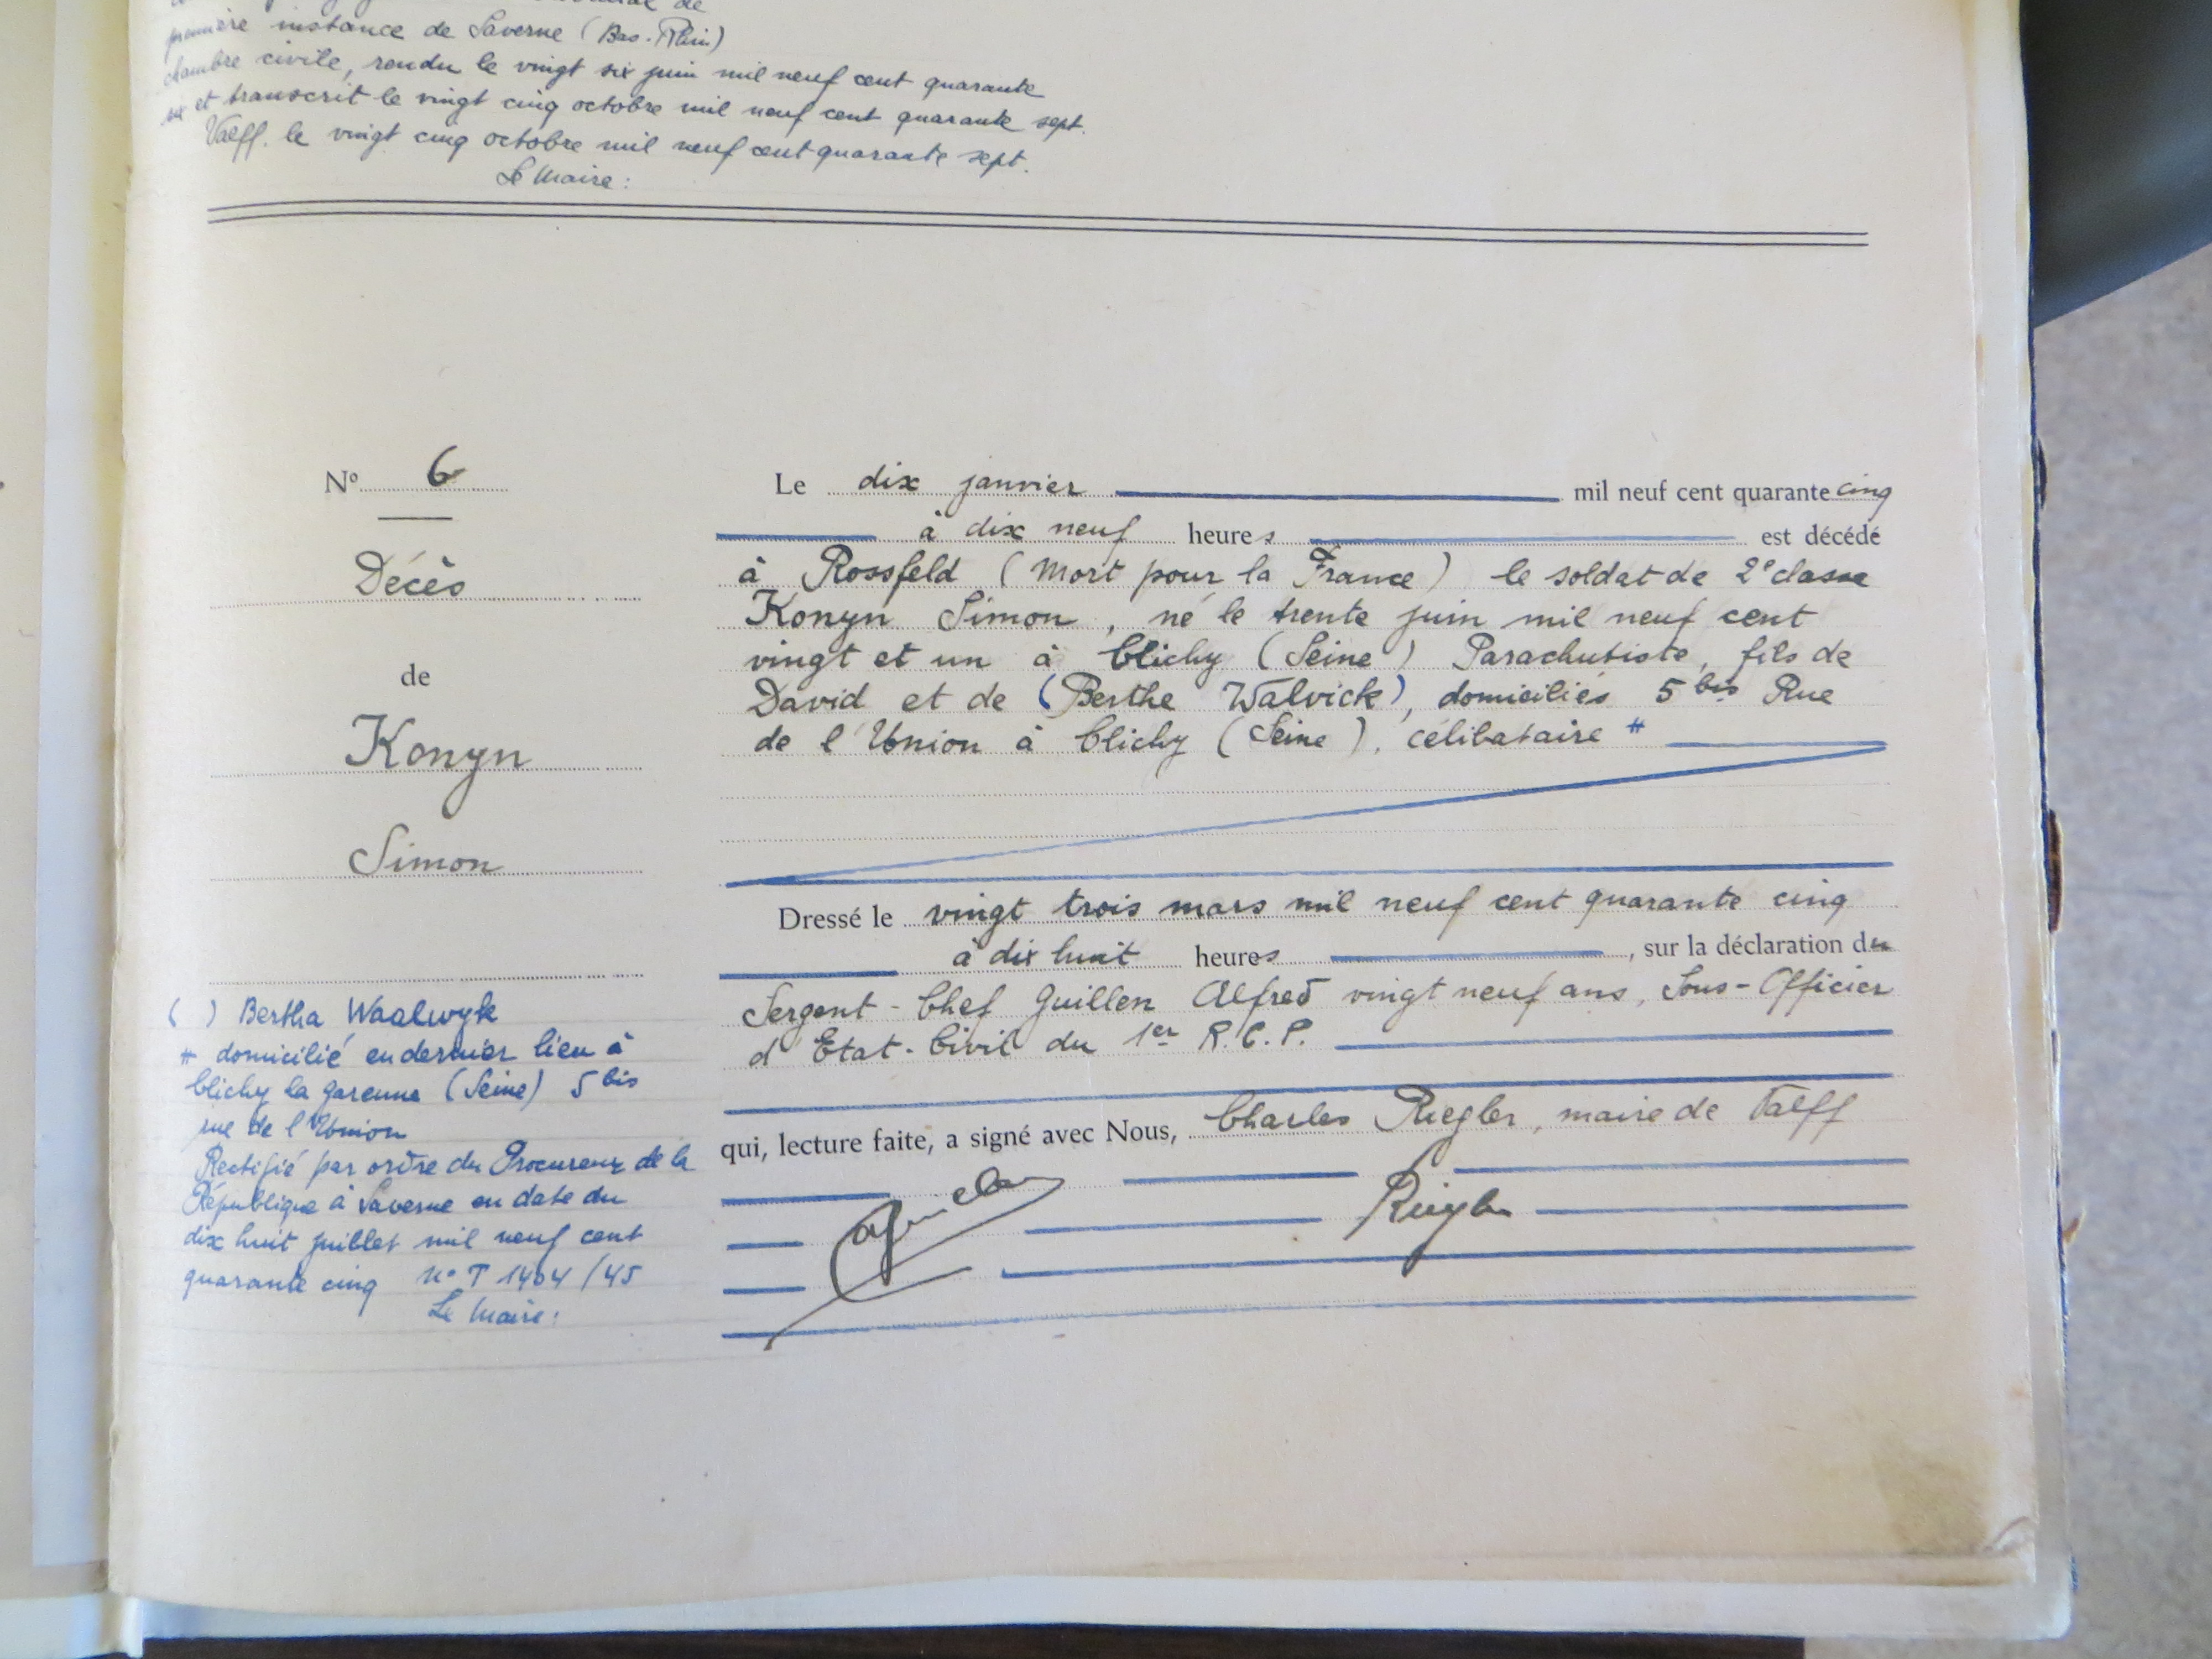 première instance de Saverne (Bas-Rhin)
chambre civile, rendu le vingt six juin mil neuf cent quarante
six et transcrit le vingt cinq octobre mil neuf cent quarante sept.
Valff. le vingt cinq octobre mil neuf cent quarante sept.
Le Maire:
N° 6
Décès
de
Konyn
Simon
( ) Bertha Waalwyk
# domicilié en dernier lieu à
Clichy la garenne (Seine) 5 bis
rue de l'Union
Rectifié par ordre du Procureur de la
République à Saverne en date du
dix huit juillet mil neuf cent
quarante cinq N° T 1404/45
Le Maire:
Le dix janvier mil neuf cent quarante cinq
à dix neuf heures est décédé
à Rossfeld (Mort pour la France) le soldat de 2e classe
Konyn Simon, né le trente juin mil neuf cent
vingt et un à Clichy (Seine) Parachutiste, fils de
David et de (Berthe Walvick), domiciliés 5 bis Rue
de l'Union à Clichy (Seine), célibataire #
Dressé le vingt trois mars mil neuf cent quarante cinq
à dix huit heures, sur la déclaration du
Sergent-Chef Guillen Alfred vingt neuf ans, Sous-Officier
d'Etat-Civil du 1er R.C.P.
qui, lecture faite, a signé avec Nous, Charles Riegler, maire de Valff
Riegler